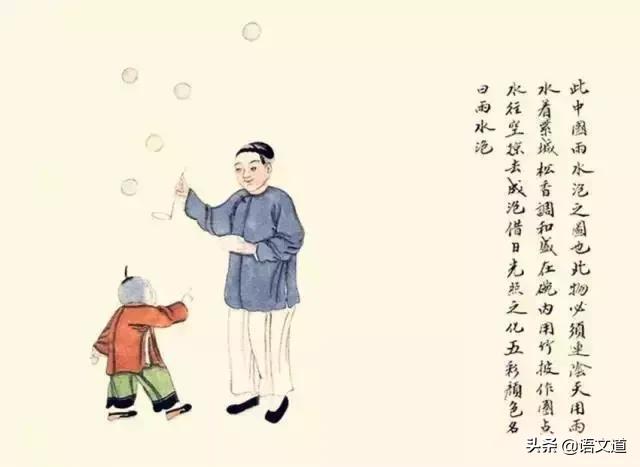 此中國雨水泡之圖也此物必須連陰天用雨
水着紫城松香調和盛在碗內用竹披作圈点
水往空掠去成泡借日光照之化五彩顏色名
曰雨水泡
头条 @语文道